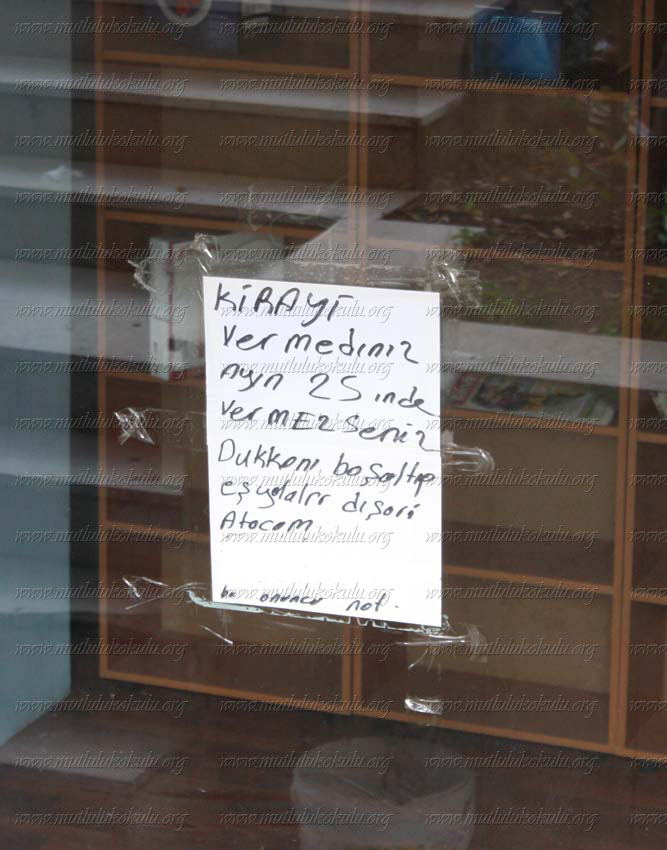 KİRAYİ
Vermediniz
Ayın 25 inde
VerMEZSeniz
Dukkanı boşaltıp
eşyaları dışari
Atacam
bu onuncu not.
www.mutlulukokulu.org